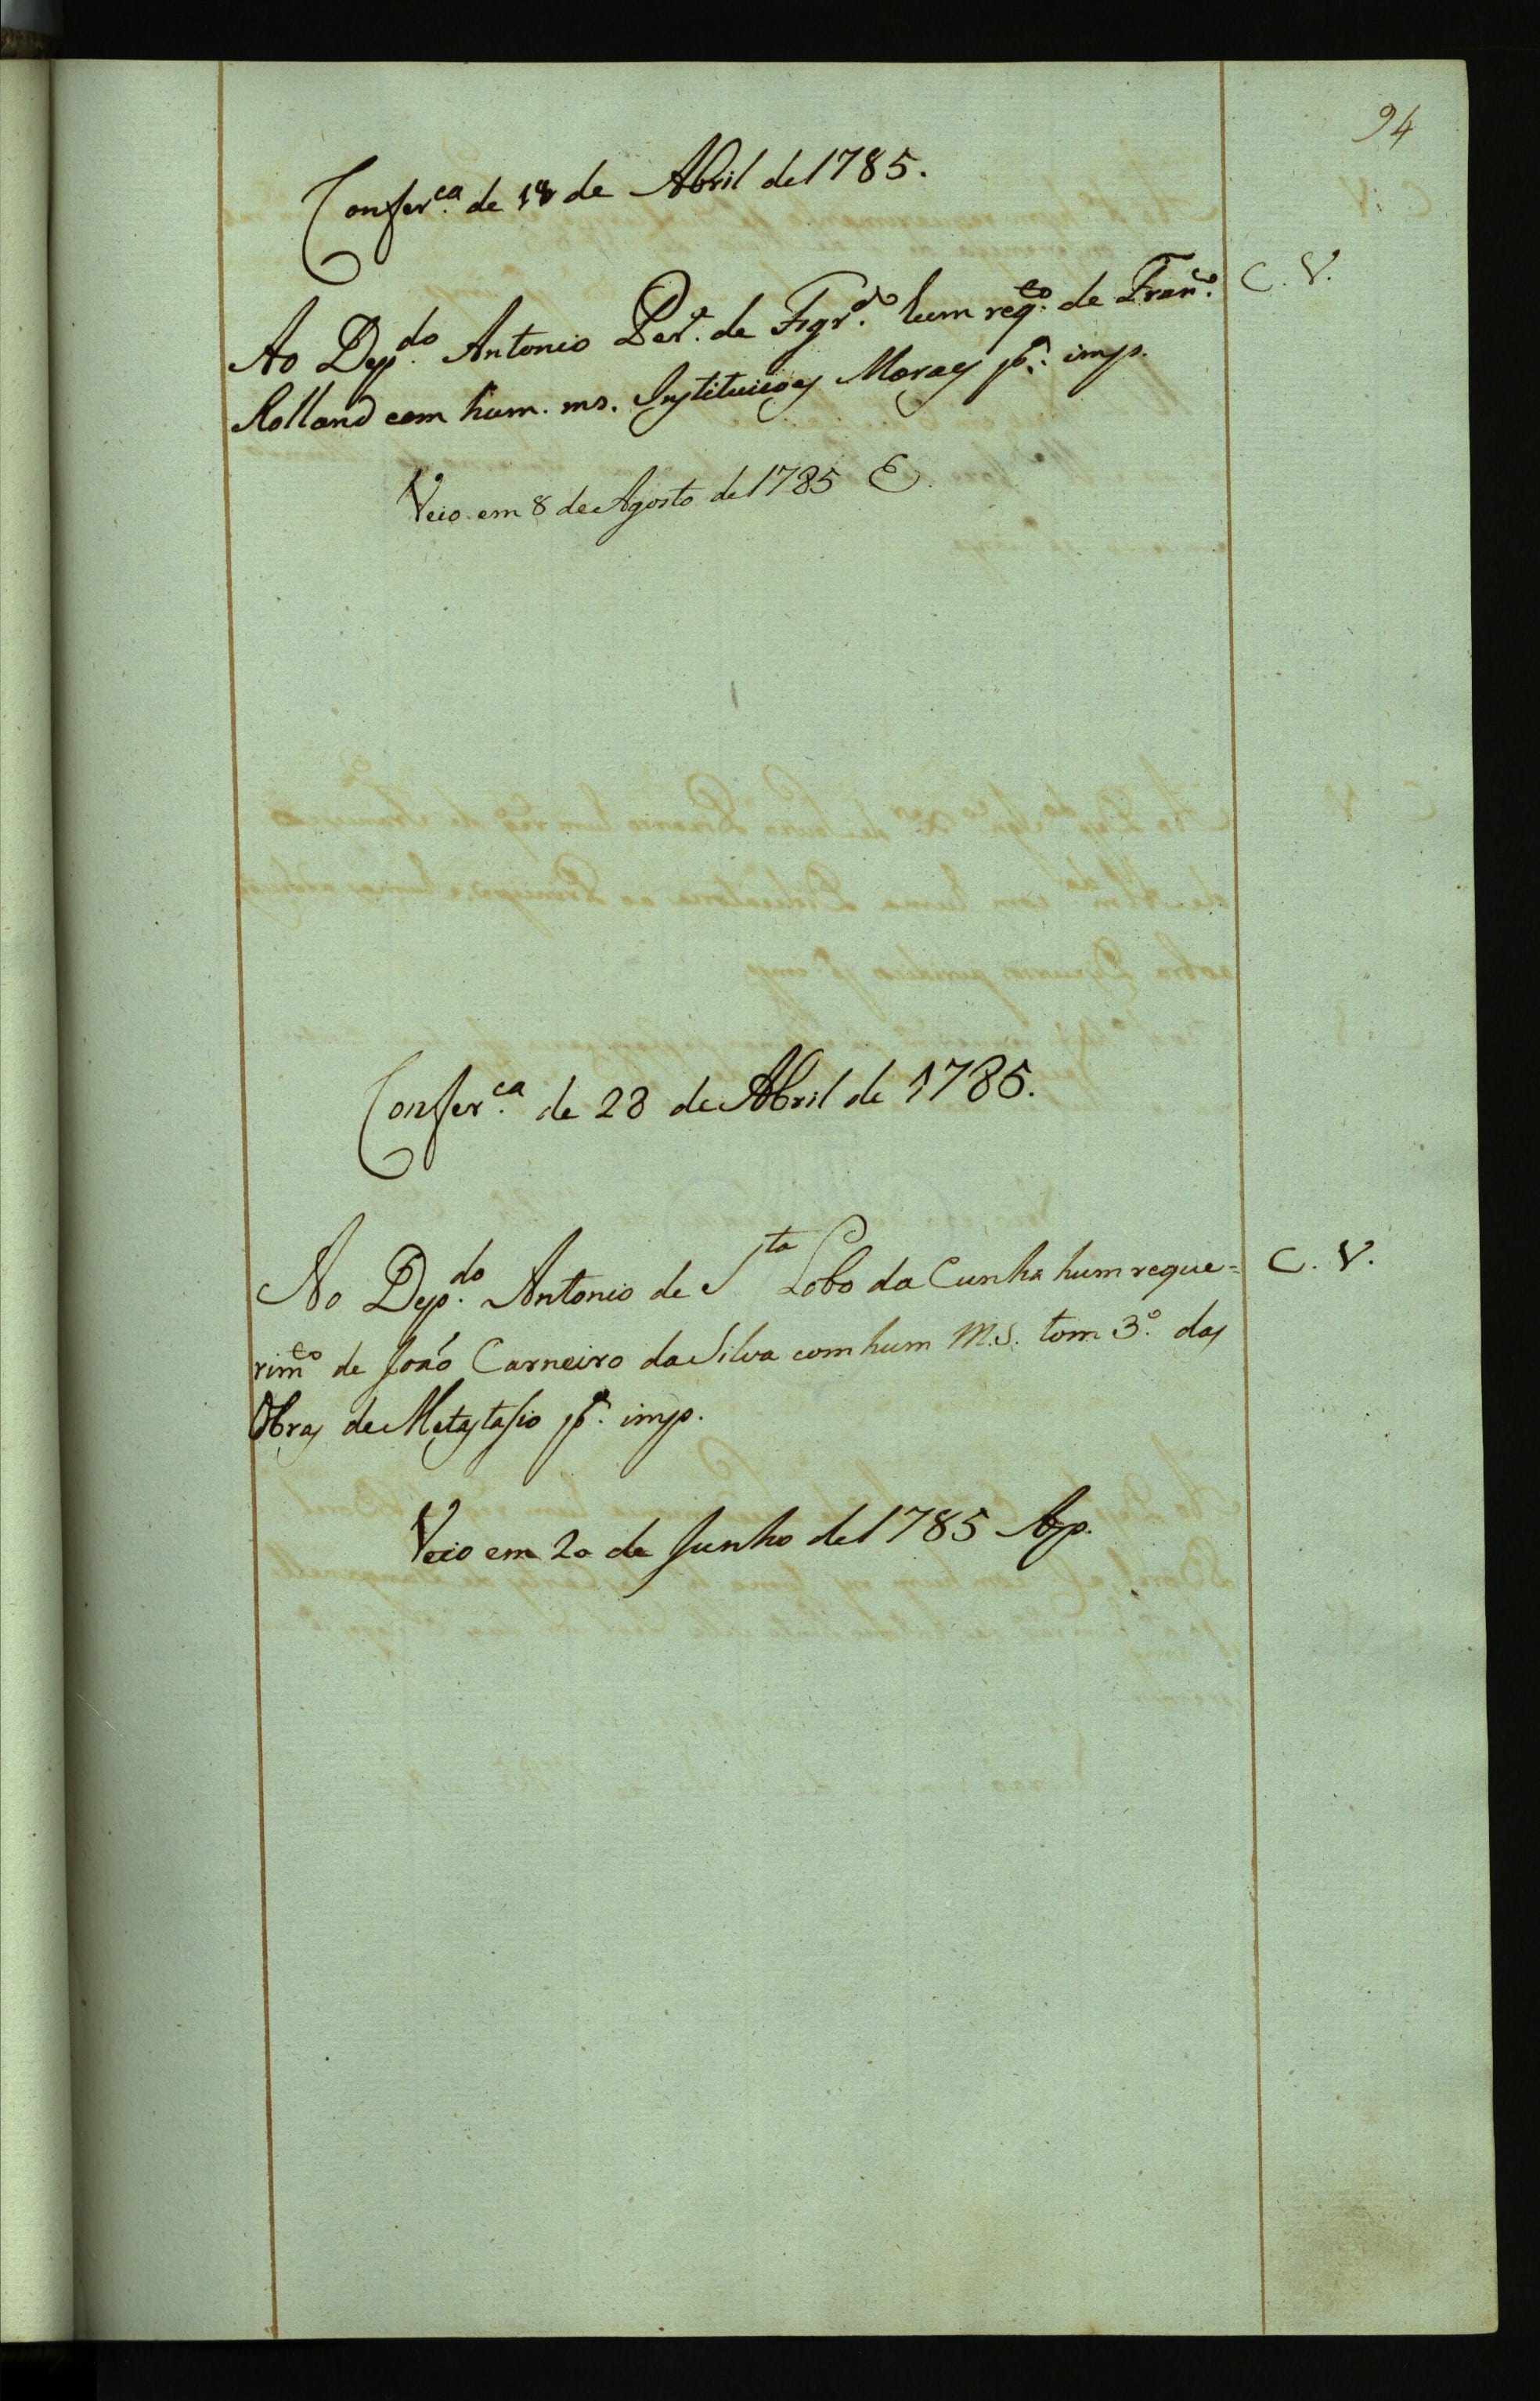 94
Confer.ca de 18 de Abril de 1785.
Ao Dep.do Antonio Per.a de Figr.do hum reqto. de Franco. C. V.
Rolland com hum. ms. Instituicoes Moraes pa. imp.
Veio em 8 de Agosto de 1785 E.
Confer.ca de 28 de Abril de 1785.
Ao Dep.do Antonio de Sta Lobo da Cunha hum reque= C. V.
rimto de João Carneiro da Silva com hum M.S. tom 3.o das
Obras de Metastasio pa. imp.
Veio em 20 de Junho de 1785 Ap.